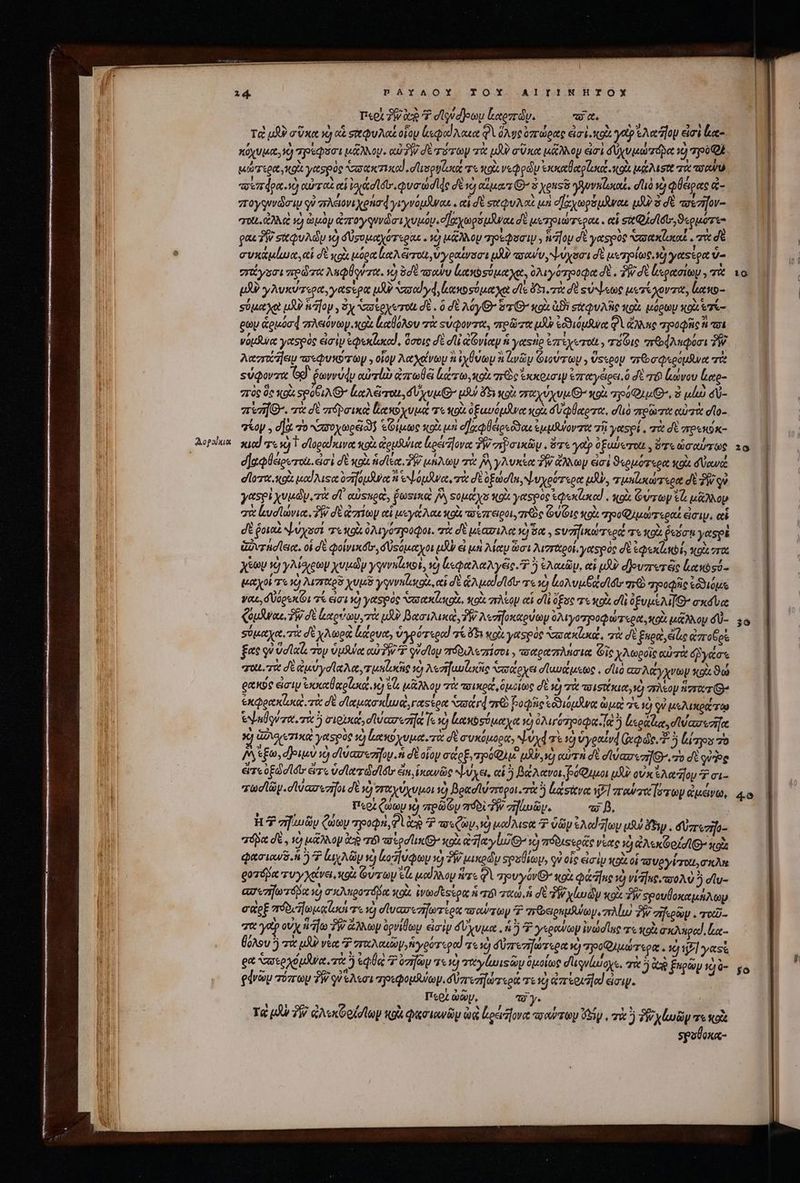 24 ΠΑΥΛΟΥ ΤΟΥ ΑΙΓΙΝΗΤΟΥ
Περὶ τῶν ἀπὸ τῶν δένδρων καρπῶν. πα.
Τὰ μὲν σῦκα καὶ αἱ σταφυλαὶ οἷον κεφάλαια τῆς ὅλης ὀπώρας εἰσὶ. καὶ γὰρ ἐλάττον εἰσὶ κα-
κόχυμα, καὶ τρέφουσι μᾶλλον. αὐτῶν δὲ τούτων τὰ μὲν σῦκα μᾶλλον εἰσὶ εὐχυμώτερα καὶ τροφι-
μώτερα, καὶ γαστρὸς ὑπακτικὰ. διουρητικά τε καὶ νεφρῶν ἐκκαθαρτικά. καὶ μάλιστα τὰ πάνυ
πέπειρα. καὶ αὗται αἱ ἰσχάδες. φυσώδεις δὲ καὶ αἵματος οὐ χρηστοῦ γεννητικαί. διὸ καὶ φθεῖρας ἀ-
πογεννῶσιν ἐν πλέονι χρήσει γινόμεναι. αἱ δὲ σταφυλαὶ μὴ διαχωρούμεναι μὲν οὐδὲ πέττον-
ται. ἀλλὰ καὶ ὠμὸν ἀπογεννῶσι χυμόν. διαχωρούμεναι δὲ μετριώτεραι. αἱ σταφίδες, θερμότε-
ραι τῶν σταφυλῶν καὶ εὐστομαχότεραι. καὶ μᾶλλον τρέφουσιν, ἧττον δὲ γαστρὸς ὑπακτικαὶ. τὰ δὲ
συκάμινα, αἱ δὲ καὶ μόρα καλεῖται, ὑγραίνουσι μὲν πάνυ, ψύχουσι δὲ μετρίως, καὶ γαστέρα ὑ-
πάγουσι πρῶτα ληφθέντα. καὶ οὐδὲ πάνυ κακοστόμαχα, ὀλιγότροφα δὲ. τῶν δὲ κερασίων, τὰ 10
μὲν γλυκύτερα, γαστέρα μὲν ὑπάγει, κακοστόμαχα δέ ἐστι. τὰ δὲ στύψεως μετέχοντα, κακο-
στόμαχα μὲν ἧττον, οὐχ ὑπέρχεται δὲ. ὁ δὲ λόγος οὗτος καὶ ἐπὶ σταφυλῆς καὶ μόρων καὶ ἑτέ-
ρων ἁρμόσει πλειόνων. καὶ καθόλου τὰ στύφοντα, πρῶτα μὲν ἐσθιόμενα τῆς ἄλλης τροφῆς ἢ πι
νόμενα γαστρὸς εἰσὶν ἐφεκτικαὶ. ὅσοις δὲ δι' ἀτονίαν ἡ γαστὴρ ἐπέχεται, τούτοις προσειληφόσι τῶν
λαπάττειν πεφυκότων, οἷον λαχάνων ἢ ἰχθύων ἢ τινῶν τοιούτων, ὕστερον προσφερόμενα τὰ
στύφοντα τῷ ῥωννύειν αὐτὴν ἀπωθεῖ κάτω, καὶ πρὸς ἔκκρισιν ἐπαγείρει. ὁ δὲ τοῦ κώνου καρ-
πὸς ὃς καὶ στρόβιλος καλεῖται, εὔχυμος μὲν ἐστι καὶ παχύχυμος καὶ τρόφιμος. οὐ μὴν εὔ-
πεπτος. τὰ δὲ περσικὰ κακόχυμά τε καὶ ὀξυνόμενα καὶ εὔφθαρτα. διὸ πρῶτα αὐτὰ δο-
τέον, διὰ τὸ ὑποχωρεῖσθαι ἑτοίμως καὶ μὴ διαφθείρεσθαι ἐμμένοντα τῇ γαστρί. τὰ δὲ πρεκόκ-
Δορακια κια τε καὶ † δορακινα καὶ ἀρμένια κρείττονα τῶν περσικῶν. οὔτε γὰρ ὀξύνεται, οὔτε ὡσαύτως 20
διαφθείρεται. εἰσὶ δὲ καὶ ἡδίω. τῶν μήλων τὰ μὴ γλυκέα τῶν ἄλλων εἰσὶ θερμότερα καὶ εὐανά
δοτα. καὶ μάλιστα ὀπτόμενα ἢ ἑψόμενα. τὰ δὲ ὀξώδη, ψυχρότερα μὲν, τμητικώτερα δὲ τῶν ἐν
γαστρὶ χυμῶν. τὰ δ' αὐστηρὰ, ῥωστικὰ μὴ στομάχου καὶ γαστρὸς ἐφεκτικαὶ. καὶ τούτων ἔτι μᾶλλον
τὰ κυδώνια. τῶν δὲ ἀπίων αἱ μεγάλαι καὶ πέπειροι, πρὸς τούτοις καὶ τροφιμώτεραί εἰσιν. αἱ
δὲ ῥοιαὶ ψύχουσί τε καὶ ὀλιγότροφοι. τὰ δὲ μέσπιλα καὶ οὖα, στυπτικώτερά τε καὶ ῥεούσῃ γαστρὶ
ἐπιτήδεια. οἱ δὲ φοίνικες, δυστόμαχοι μὲν εἰ μὴ λίαν ὦσι λιπαροί. γαστρὸς δὲ ἐφεκτικοί, καὶ πα
χέων καὶ γλίσχρων χυμῶν γεννητικοί, καὶ κεφαλαλγεῖς. τῶν δ' ἐλαιῶν, αἱ μὲν δρυπετεῖς κακοστό-
μαχοί τε καὶ λιπαροῦ χυμοῦ γεννητικαὶ, αἱ δὲ ἁλμάδες τε καὶ κολυμβάδες πρὸ τροφῆς ἐσθιόμε
ναι, εὐόρεκτοί τέ εἰσι καὶ γαστρὸς ὑπακτικαὶ. καὶ πλέον αἱ δι' ὄξους τε καὶ δι' ὀξυμέλιτος σκευα
ζόμεναι. τῶν δὲ καρύων, τὰ μὲν βασιλικὰ, τῶν λεπτοκαρύων ὀλιγοτροφώτερα, καὶ μᾶλλον εὐ- 30
στόμαχα. τὰ δὲ χλωρὰ κάρυα, ὑγρότερά τέ ἐστι καὶ γαστρὸς ὑπακτικά, τὰ δὲ ξηρὰ, εἴ τις ἀποβρέ
ξας ἐν ὕδατι τὸν ὑμένα αὐτῶν τὸν ἔνδον περιλεπίσοι, παραπλήσια τοῖς χλωροῖς αὐτὰ ἐργάσε
ται. τὰ δὲ ἀμύγδαλα, τμητικῆς καὶ λεπτυντικῆς ὑπάρχει δυνάμεως. διὸ σπλάγχνων καὶ θώ
ρακός εἰσιν ἐκκαθαρτικά. καὶ ἔτι μᾶλλον τὰ πικρά. ὁμοίως δὲ καὶ τὰ πιστάκια, καὶ πλέον ἥπατος
ἐκφρακτικά. τὰ δὲ δαμασκηνὰ, γαστέρα ὑπάγει πρὸ τροφῆς ἐσθιόμενα ὠμά τε καὶ ἐν μελικράτῳ
ἑψηθέντα. τὰ δὲ σηρικὰ, δύσπεπτά τε καὶ κακοστόμαχα καὶ ὀλιγότροφα. τὰ δὲ κεράτια, δύσπεπτα
καὶ ἐπισχετικὰ γαστρὸς καὶ κακόχυμα. τὰ δὲ συκόμορα, ψύχει τε καὶ ὑγραίνει σαφῶς. τοῦ δὲ κίτρου τὸ
μὲν ἔξω, δριμὺ καὶ δύσπεπτον. ἡ δὲ οἷον σάρξ, τρόφιμος μὲν, καὶ αὐτὴ δὲ δύσπεπτος. τὸ δὲ ἐντὸς
εἴτε ὀξῶδες εἴτε ὑδατῶδες εἴη, ἱκανῶς ψύχει. αἱ δὲ βάλανοι, τρόφιμοι μὲν οὐκ ἔλαττον τῶν σι-
τωδῶν. δύσπεπτοι δὲ καὶ παχύχυμοι καὶ βραδύποροι. τὰ δὲ κάστανα κατὰ πάντα τούτων ἀμείνω. 40
Περὶ ζώων καὶ πρῶτον περὶ τῶν πτηνῶν. πβ.
Ἡ τῶν πτηνῶν ζώων τροφὴ, τῆς ἀπὸ τῶν πεζῶν, καὶ μάλιστα τῶν ὑῶν ἐλάττων μὲν ἐστιν. εὐπεπτο-
τέρα δὲ, καὶ μᾶλλον ἀπὸ τοῦ πέρδικος καὶ ἀτταγῆνος καὶ περιστερᾶς νέας καὶ ἀλεκτορίδος καὶ
φασιανοῦ. ἡ δὲ τῶν κιχλῶν καὶ κοττύφων καὶ τῶν μικρῶν στρουθίων, ἐν οἷς εἰσὶν καὶ οἱ πυργῖται, σκλη
ροτέρα τυγχάνει, καὶ τούτων ἔτι μᾶλλον ἥτε τῆς τρυγόνος καὶ φάττης καὶ νήττης. πολὺ δὲ δυ-
σπεπτοτέρα καὶ σκληροτέρα καὶ ἰνωδεστέρα ἡ τοῦ ταώ. ἡ δὲ τῶν χηνῶν καὶ τῶν στρουθοκαμήλων
σὰρξ περιττωματική τε καὶ δυσπεπτοτέρα πάντων τῶν προειρημένων. πλὴν τῶν πτερῶν. ταῦ-
τα γὰρ οὐχ ἧττω τῶν ἄλλων ὀρνίθων εἰσὶν εὔχυμα. ἡ δὲ τῶν γεράνων ἰνώδης τε καὶ σκληρά. κα-
θόλου δὲ τὰ μὲν νέα τῶν παλαιῶν, ὑγρότερά τε καὶ εὐπεπτότερα καὶ τροφιμώτερα. καὶ κατὰ γαστέ
ρα ὑπερχόμενα. τὰ δὲ ἑφθὰ τῶν ὀπτῶν τε καὶ ταγηνιστῶν ὁμοίως διενήνοχε. τὰ δὲ ἀπὸ ξηρῶν καὶ ὀ- 50
ρεινῶν τόπων τῶν ἐν ἕλεσι τρεφομένων. εὐπεπτότερά τε καὶ ἀπέριττά εἰσιν.
Περὶ ὠῶν. πγ.
Τὰ μὲν τῶν ἀλεκτορίδων καὶ φασιανῶν ὠὰ κρείττονα πάντων ἐστίν. τὰ δὲ τῶν χηνῶν τε καὶ
στρουθοκα-